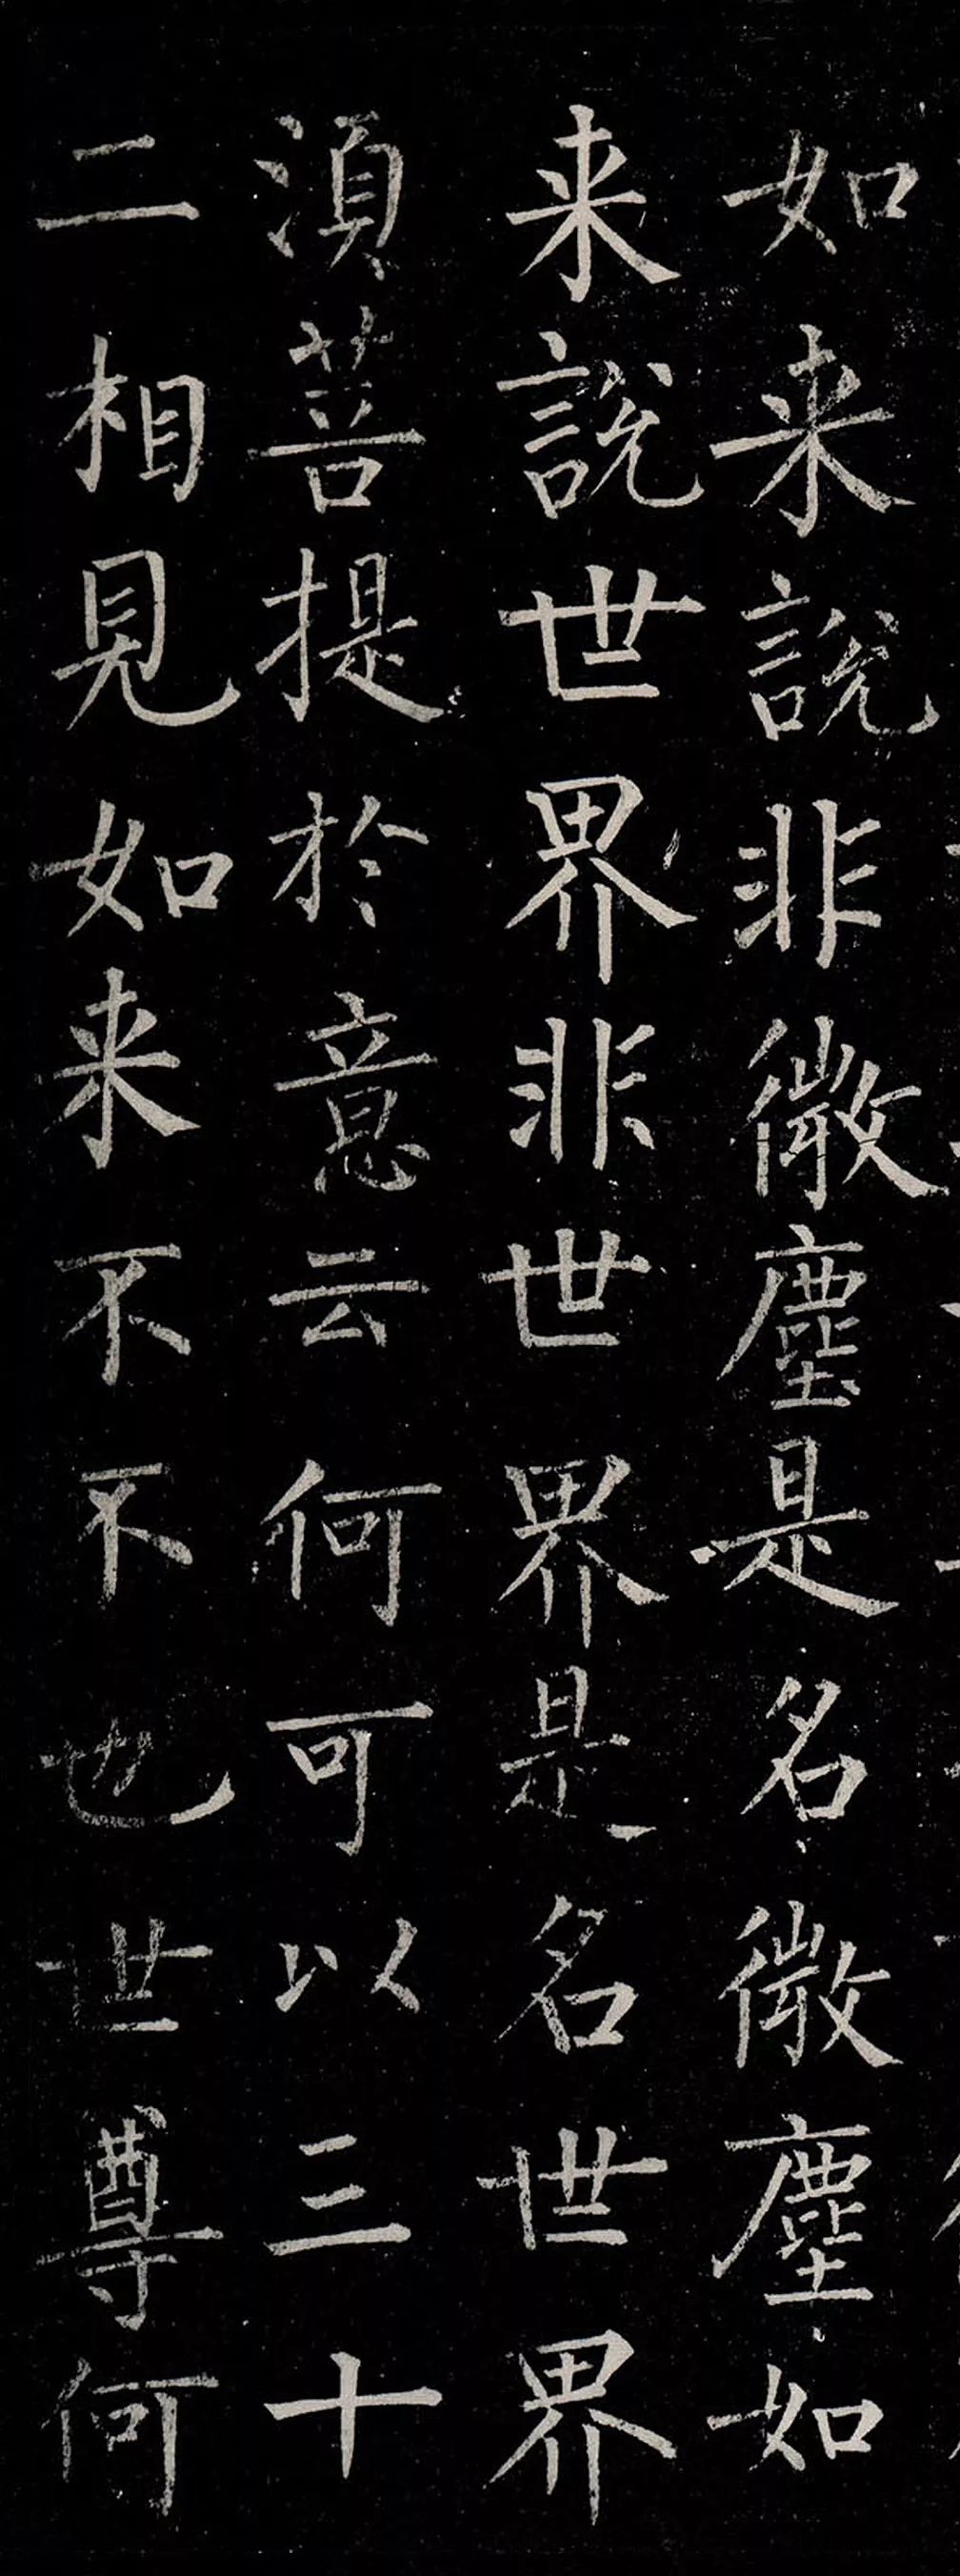 如来說非微塵是名微塵如
来說世界非世界是名世界
湏菩提於意云何可以三十
二相見如来不不也世尊何